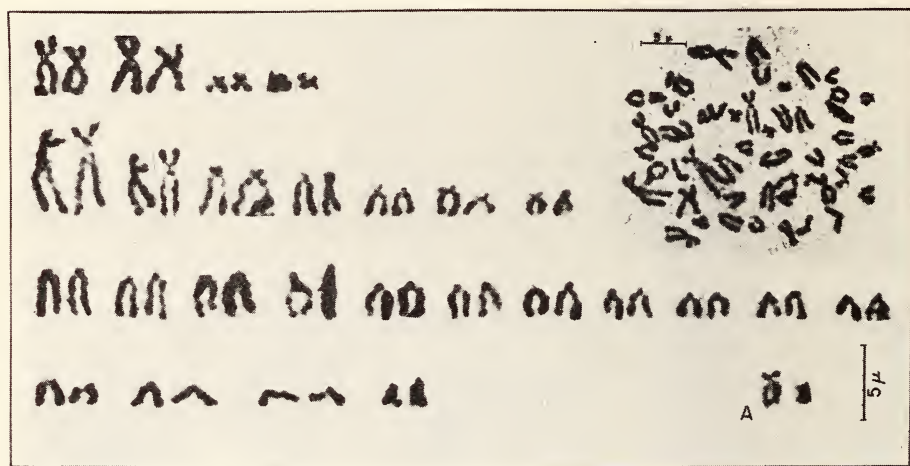 5μ
A
5μ